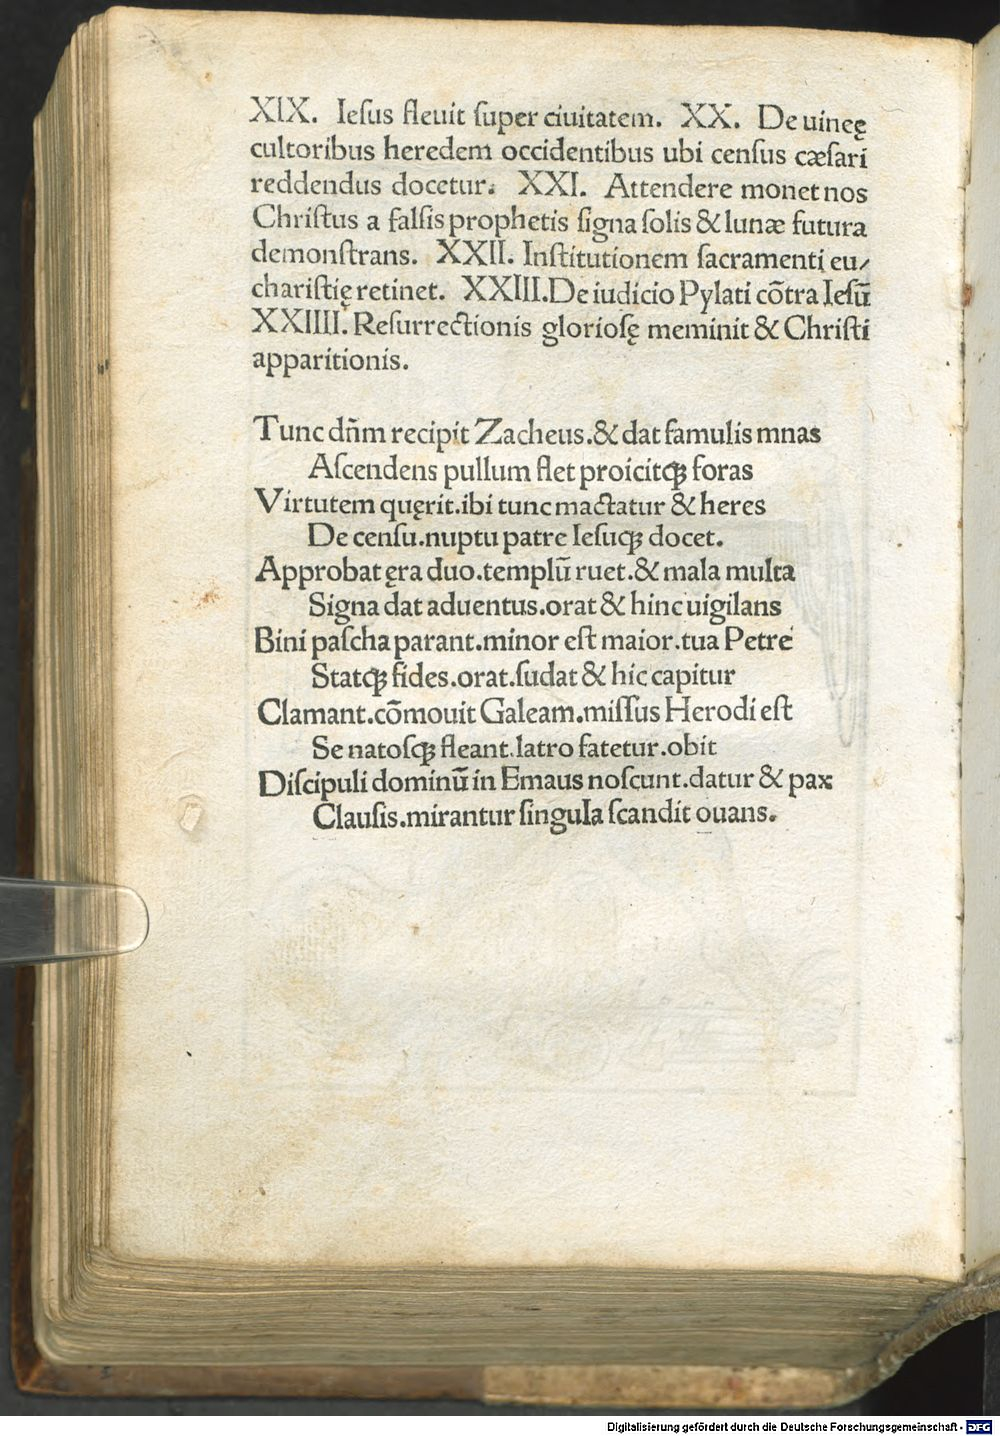 XIX. Ieſus fleuit ſuper ciuitatem. XX. De uineę
cultoribus heredem occidentibus ubi cenſus cæſari
reddendus docetur. XXI. Attendere monet nos
Chriſtus a falſis prophetis ſigna ſolis & lunæ futura
demonſtrans. XXII. Inſtitutionem ſacramenti eu/
chariſtię retinet. XXIII. De iudicio Pylati cõtra Ieſū
XXIIII. Reſurrectionis glorioſę meminit & Chriſti
apparitionis.
Tunc dñm recipit Zacheus. & dat famulis mnas
Aſcendens pullum flet proicitqꝫ foras
Virtutem quęrit. ibi tunc mactatur & heres
De cenſu. nuptu patre Ieſuqꝫ docet.
Approbat ęra duo. templū ruet. & mala multa
Signa dat aduentus. orat & hinc uigilans
Bini paſcha parant. minor eſt maior. tua Petre
Statqꝫ fides. orat. ſudat & hic capitur
Clamant. cõmouit Galeam. miſſus Herodi eſt
Se natoſqꝫ fleant. latro fatetur. obit
Diſcipuli dominū in Emaus noſcunt. datur & pax
Clauſis. mirantur ſingula ſcandit ouans.
Digitalisierung gefördert durch die Deutsche Forschungsgemeinschaft - DFG